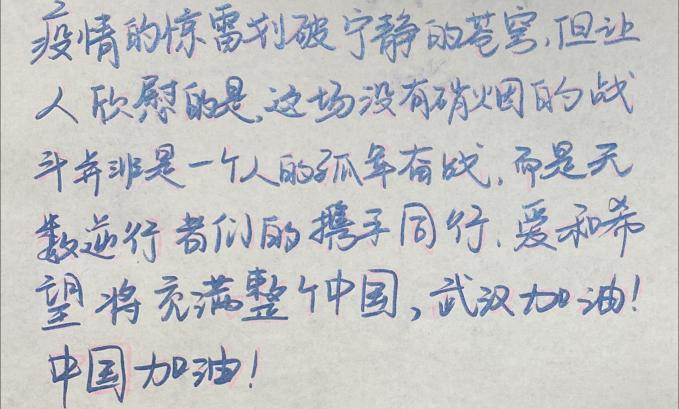 疫情的惊雷划破宁静的苍穹,但让
人欣慰的是,这场没有硝烟的战
斗并非是一个人的孤军奋战,而是无
数逆行者们的携手同行.爱和希
望将充满整个中国,武汉加油!
中国加油!